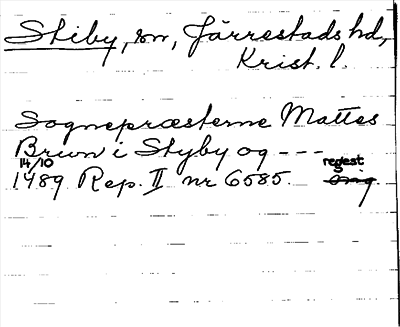 Stiby, sn, Järrestads hd,
Krist. l.
Sognepræsterne Mattes
Brun i Styby og ---
14/10
1489 Rep. II nr 6585. regest
orig.